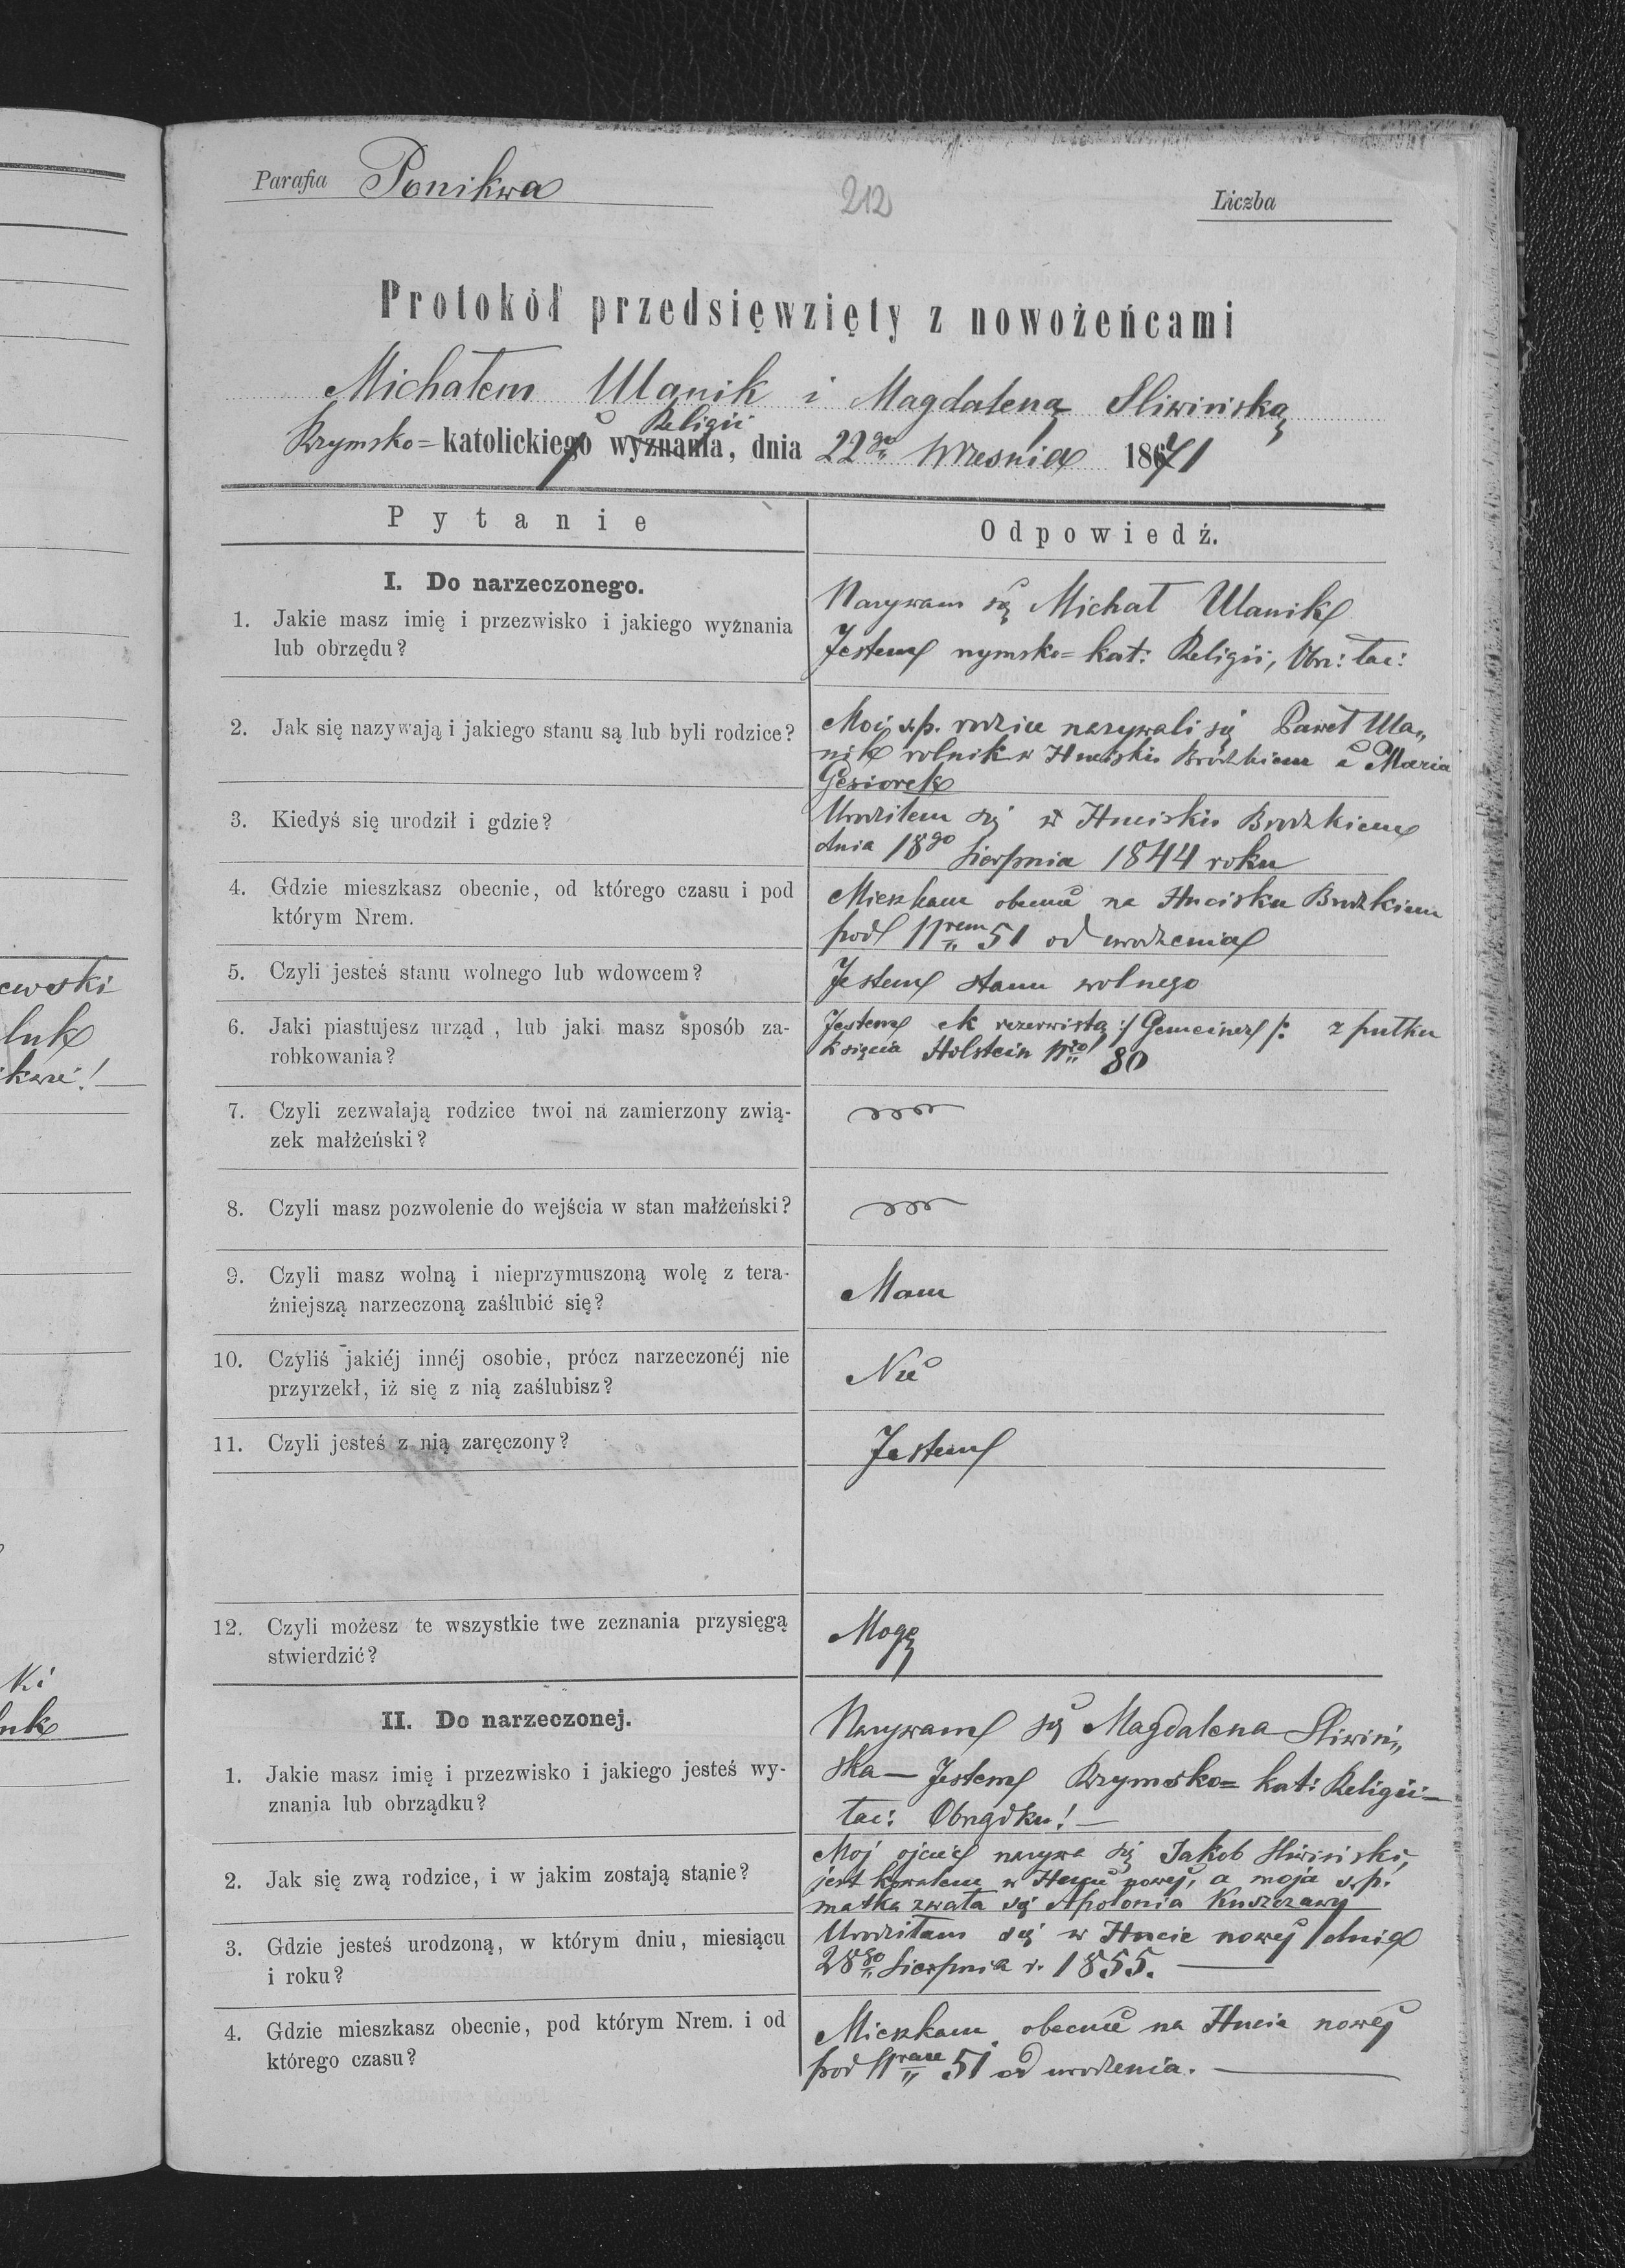 Parafia Ponikwa
212
Liczba
Protokół przedsięwzięty z nowożeńcami
Michałem Ulanik i Magdaleną Sliwińską
Religii
Rzymsko=katolickiego wyznania, dnia 22go Wresnia 1871
Pytanie
Odpowiedź.
I. Do narzeczonego.
1. Jakie masz imię i przezwisko i jakiego wyznania
lub obrzędu?
Nazywam się Michał Ulanik
Jestem rzymsko=kat: Religii, Obrz: łac:
2. Jak się nazywają i jakiego stanu są lub byli rodzice?
Moi ś.p. rodzice nazywali się Paweł Ula„
nik rolnik w Hucisku Brodzkiem i Maria
Gesiorek
3. Kiedyś się urodził i gdzie?
Urodziłem się w Hucisku Brodzkiem
dnia 18go Sierpnia 1844 roku
4. Gdzie mieszkasz obecnie, od którego czasu i pod
którym Nrem.
Mieszkam obecnie na Hucisku Brodzkiem
pod Nrem 51 od urodzenia
5. Czyli jesteś stanu wolnego lub wdowcem?
Jestem stanu wolnego
6. Jaki piastujesz urząd, lub jaki masz sposób za-
robkowania?
Jestem ck rezerwistą :/ Gemeiner /: z pułku
księcia Holstein Nro 80
7. Czyli zezwalają rodzice twoi na zamierzony zwią-
zek małżeński?
8. Czyli masz pozwolenie do wejścia w stan małżeński?
9. Czyli masz wolną i nieprzymuszoną wolę z tera-
źniejszą narzeczoną zaślubić się?
Mam
10. Czyliś jakiéj innéj osobie, prócz narzeczonéj nie
przyrzekł, iż się z nią zaślubisz?
Nie
11. Czyli jesteś z nią zaręczony?
Jestem
12. Czyli możesz te wszystkie twe zeznania przysięgą
stwierdzić?
Mogę
II. Do narzeczonej.
1. Jakie masz imię i przezwisko i jakiego jesteś wy-
znania lub obrządku?
Nazywam się Magdalena Sliwiń„
ska — Jestem Rzymsko=kat: Religii —
łac: Obrządku! —
2. Jak się zwą rodzice, i w jakim zostają stanie?
Moj ojciec nazywa się Jakob Sliwiński,
jest kowalem w Hucie nowej, a moja ś.p.
matka zwała się Apolonia Kuszczawy
3. Gdzie jesteś urodzoną, w którym dniu, miesiącu
i roku?
Urodziłam się w Hucie nowej dnia
28go Sierpnia r. 1855. —
4. Gdzie mieszkasz obecnie, pod którym Nrem. i od
którego czasu?
Mieszkam obecnie na Hucie nowej
pod Nrem 51 od urodzenia. —
ewski
luk
ki
luk